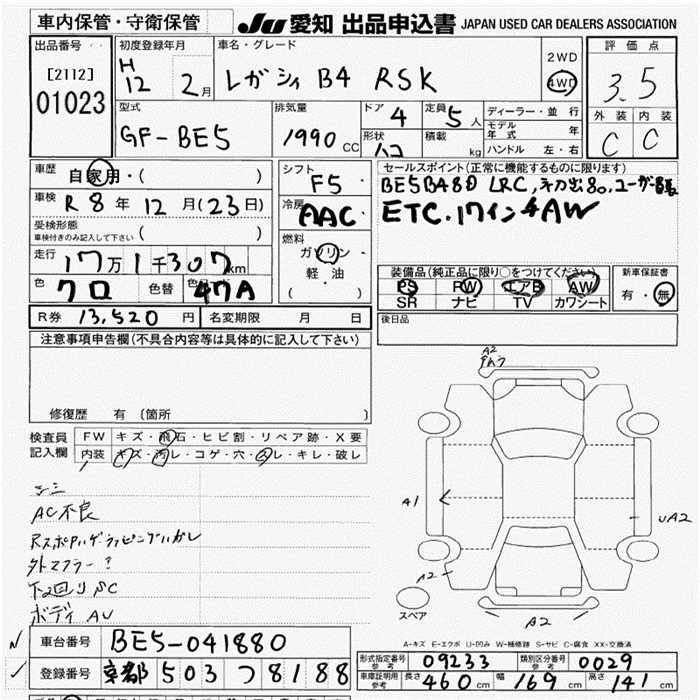 車内保管・守衛保管 JU 愛知 出品申込書 JAPAN USED CAR DEALERS ASSOCIATION
出品番号 初度登録年月 車名・グレード 評価点
[2112] H 12 2月 レガシィ B4 RSK 2WD 4WD 3.5
01023
外装 内装
C C
型式 排気量 ドア 定員 ディーラー・並行
GF-BE5 1990 CC 4 5人 モデル年式 年
形状 積載 kg ハンドル 左・右
車歴 自家用・( ) シフト F5 セールスポイント(正常に機能するものに限ります)
車検 R8年 12月(23日) 冷房 AAC BE5B48D LRC
受検形態 ETC.17インチAW
車検付きのみ記入して下さい ( ) 燃料
走行 17万1千307km ガソリン
軽・油
( )
色 クロ 色替 47A
装備品(純正品に限り○をつけてください) 新車保証書
PS PW エアB AW 有・無
SR ナビ TV カワシート
R券 13,520円 名変期限 月 日 後日品
注意事項申告欄(不具合内容等は具体的に記入して下さい)
修復歴 有 (箇所 )
検査員記入欄 FW キズ・飛石・ヒビ割・リペア跡・X要
内装 キズ・汚レ・コゲ・穴・スレ・キレ・破レ
AC不良
外マフラー?
下回りSC
ボディ AU
A2
A1
UA2
A2
スペア
A2
A-キズ E-エクボ U-凹み W-補修跡 S-サビ C-腐食 XX-交換済
車台番号 BE5-041880
登録番号 京都 503 つ 8188
形式指定番号 参考 09233 類別区分番号 参考 0029
車庫証明用 参考 長さ 460cm 幅 169cm 高さ 141cm